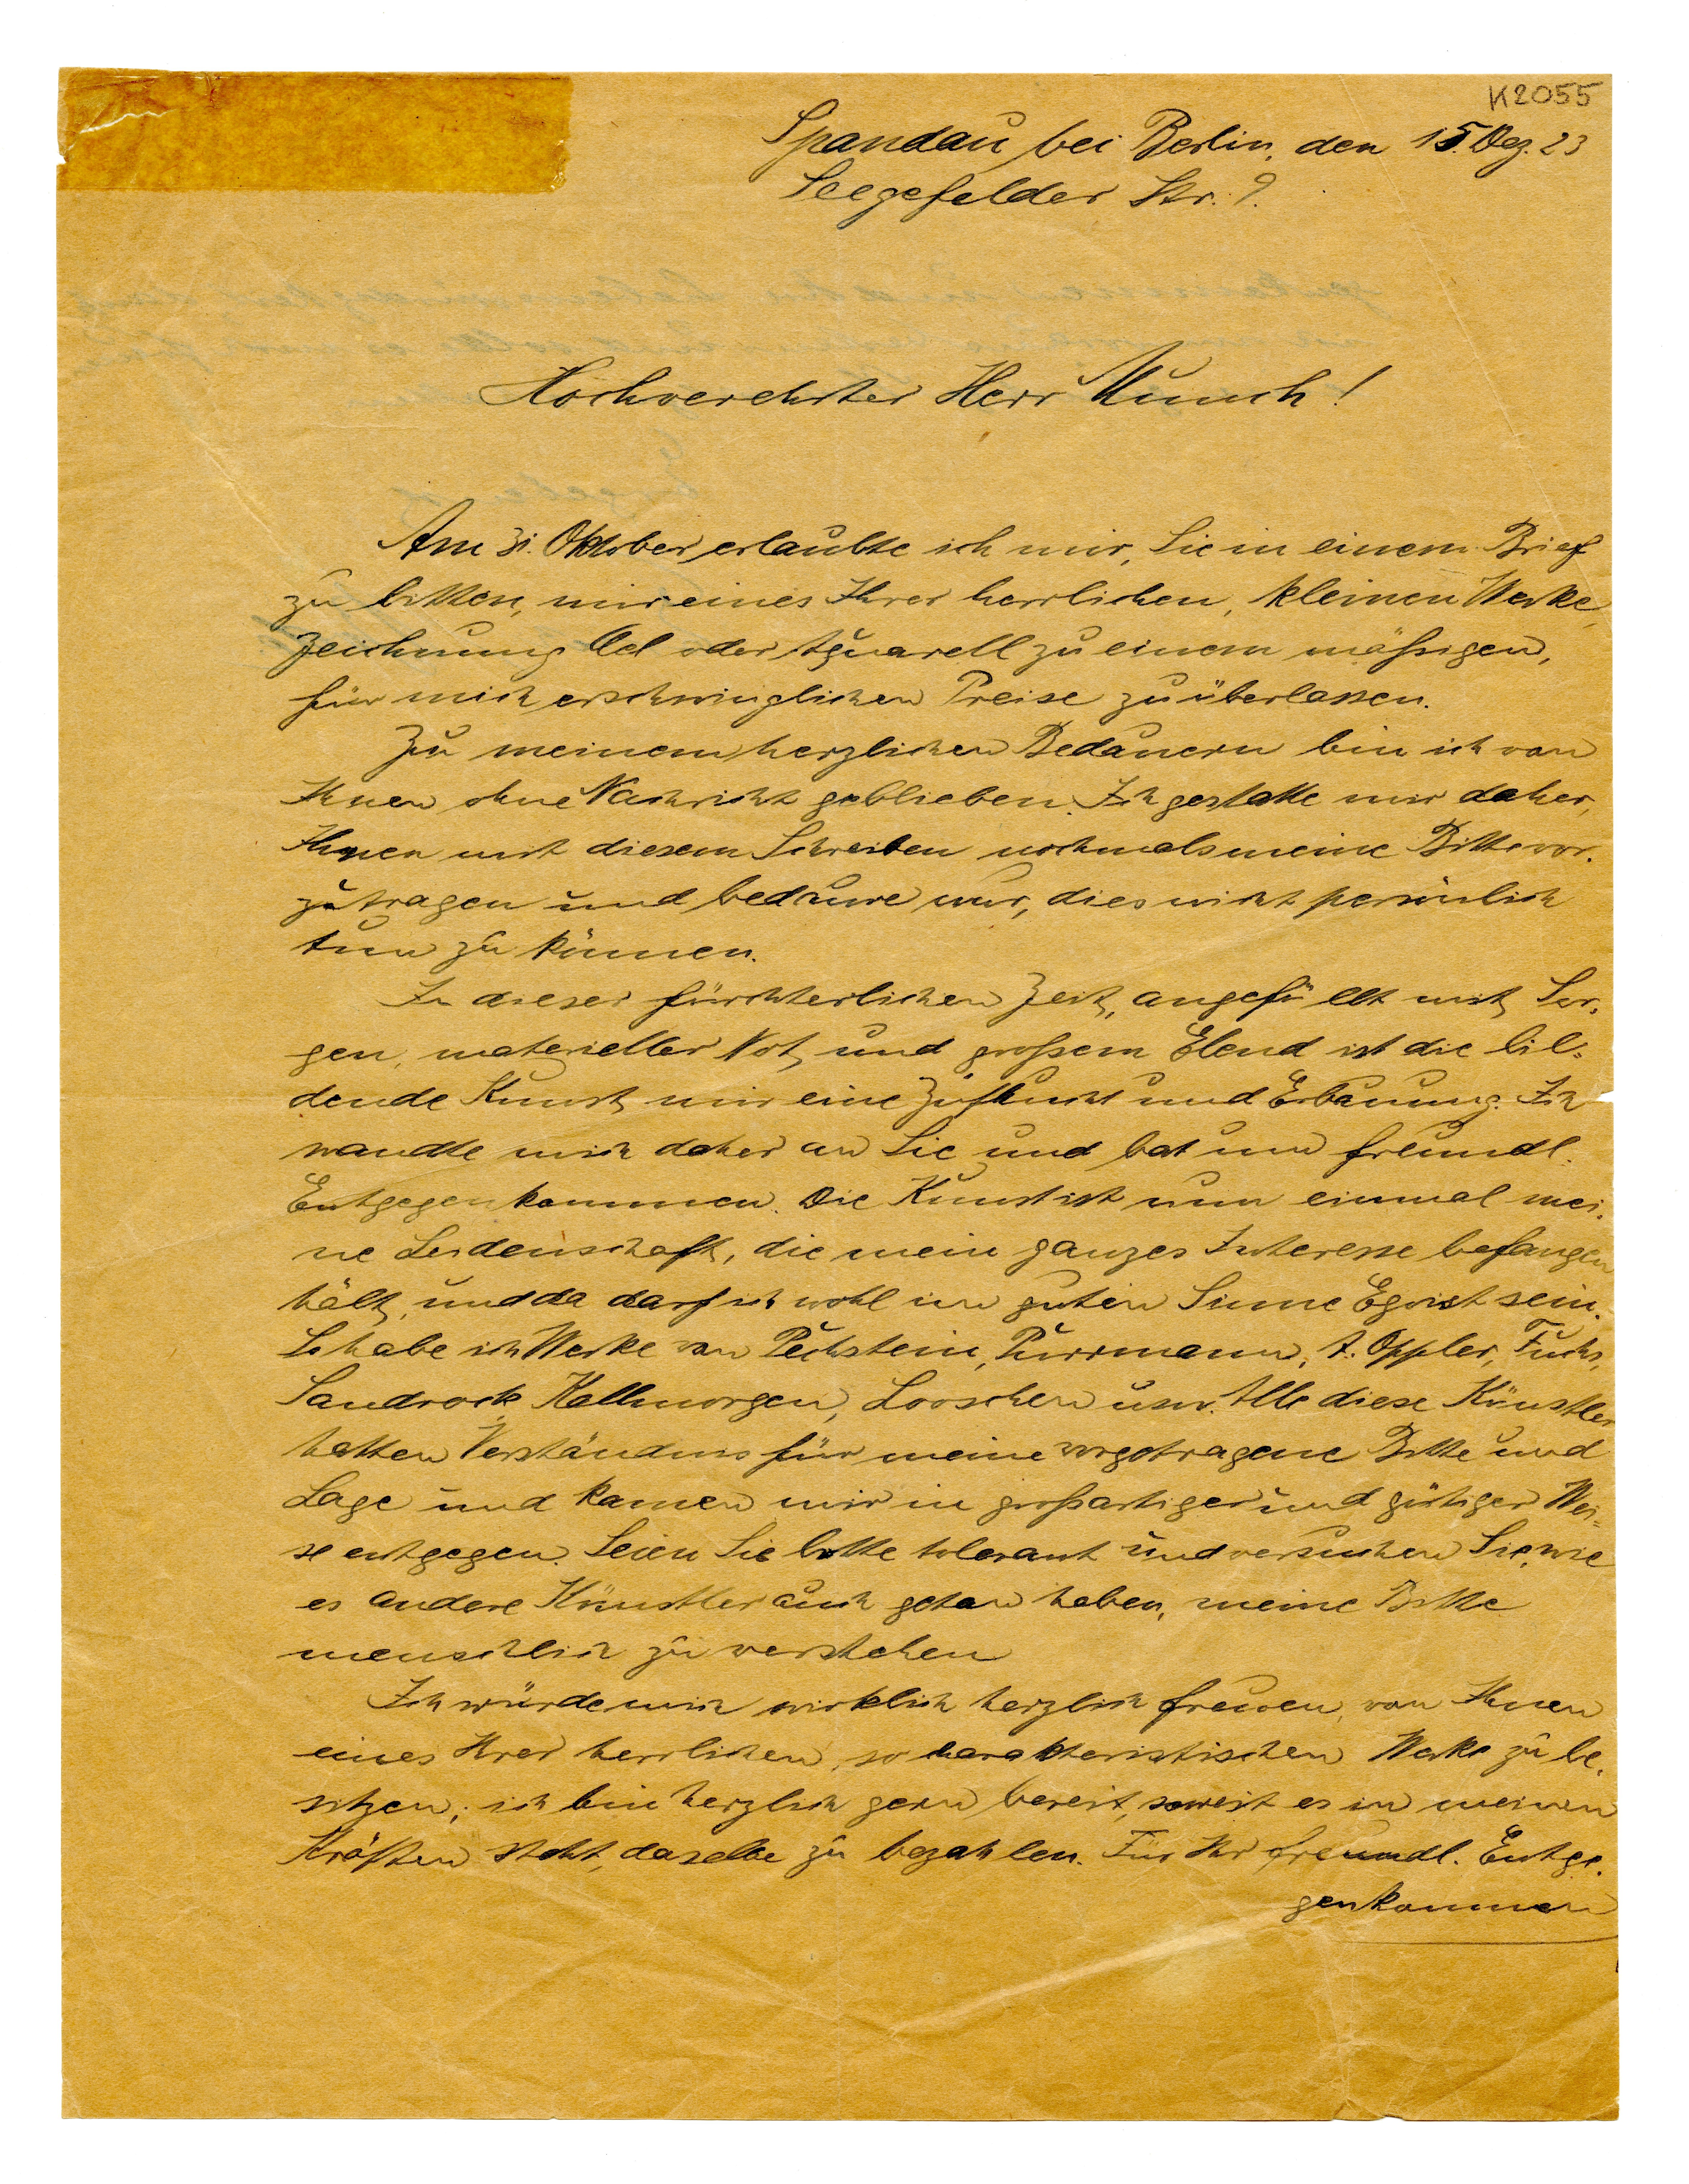 K2055
Spandau bei Berlin, den 15. Dez. 23
Seegefelder Str. 9.
Hochverehrter Herr Munch!
Am 31. Oktober erlaubte ich mir, Sie in einem Brief
zu bitten, mir eines Ihrer herrlichen, kleinen Werke,
Zeichnung Oel oder Aquarell zu einem mäßigen,
für mich erschwinglichen Preise zu überlassen.
Zu meinem herzlichen Bedauern bin ich von
Ihnen ohne Nachricht geblieben. Ich gestatte mir daher,
Ihnen mit diesem Schreiben nochmals meine Bitte vor-
zutragen und bedaure nur, dies nicht persönlich
tun zu können.
In dieser fürchterlichen Zeit, angefüllt mit Sor-
gen, materieller Not, und großem Elend ist die bil-
dende Kunst mir eine Zuflucht und Erbauung. Ich
wandte mich daher an Sie und bat um freundl.
Entgegenkommen. Die Kunst ist nun einmal mei-
ne Leidenschaft, die mein ganzes Interesse befangen
hält, und da darf ich wohl im guten Sinne Egoist sein.
So habe ich Werke von Pechstein, Purrmann, A. Oppler, Fuchs,
Sandrock Kallmorgen, Looschen usw. Alle diese Künstler
hatten Verständnis für meine vorgetragene Bitte und
Lage und kamen mir in großartiger und gütiger Wei-
se entgegen. Seien Sie bitte tolerant und versuchen Sie, wie
es andere Künstler auch getan haben, meine Bitte
menschlich zu verstehen
Ich würde mich wirklich herzlich freuen, von Ihnen
eines Ihrer herrlichen, so charakteristischen Werke zu be-
sitzen; ich bin herzlich gern bereit, soweit es in meinen
Kräften steht, dasselbe zu bezahlen. Für Ihr freundl. Entge-
genkommen